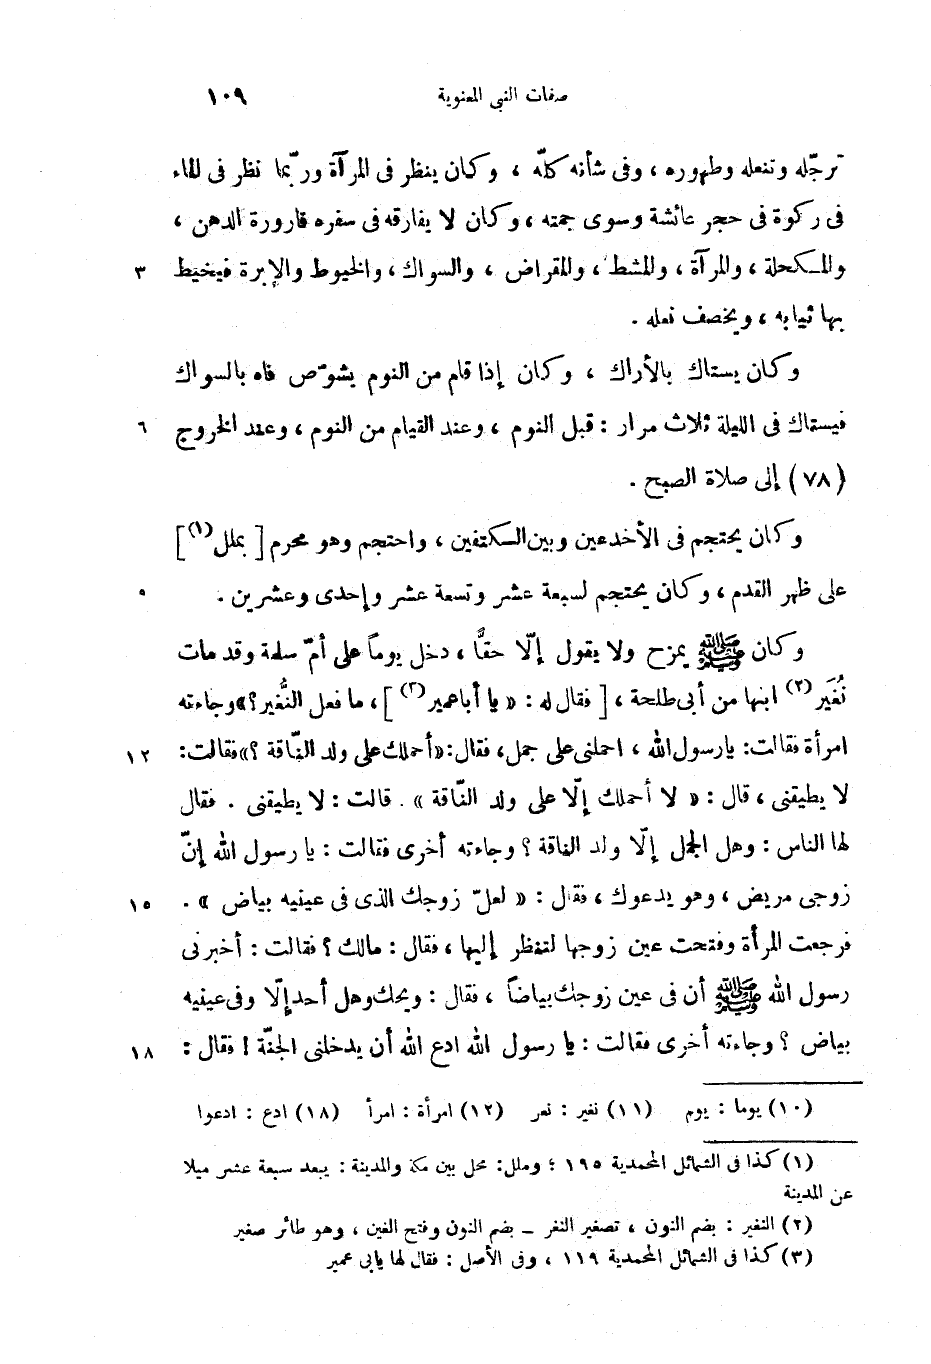 صفات النبى المعنوية ١٠٩
ترجّله وتنعله وطهوره ، وفى شأنه كلّه ، وكان ينظر فى المرآة وربّما نظر فى الماء
فى ركوة فى حجر عائشة وسوى جمته ، وكان لا يفارقه فى سفره قارورة الدهن ،
والمكحلة ، والمرآة ، والمشط ، والمقراض ، والسواك ، والخيوط والإبرة فيخيط ٣
بها ثيابه ، ويخصف نعله .
وكان يستاك بالأراك ، وكان إذا قام من النوم يشوّص فاه بالسواك
فيستاك فى الليلة ثلاث مرار : قبل النوم ، وعند القيام من النوم ، وعند الخروج ٦
(٧٨) إلى صلاة الصبح .
وكان يحتجم فى الأخدعين وبين الكتفين ، واحتجم وهو محرم [ بملل(١) ]
على ظهر القدم ، وكان يحتجم لسبعة عشر وتسعة عشر وإحدى وعشرين . ٩
وكان ﷺ يمزح ولا يقول إلّا حقًّا ، دخل يوماً على أمّ سلمة وقد مات
نُغَير(٢) ابنها من أبى طلحة ، [ فقال له : « يا أبا عمير(٣) ] ، ما فعل النُّغير ؟» وجاءته
امرأة فقالت: يارسول الله ، احملنى على جمل، فقال: «أحملك على ولد النّاقة ؟» فقالت: ١٢
لا يطيقنى ، قال : « لا أحملك إلّا على ولد النّاقة » . قالت : لا يطيقنى . فقال
لها الناس : وهل الجمل إلّا ولد الناقة ؟ وجاءته أخرى فقالت : يا رسول الله إنّ
زوجى مريض ، وهو يدعوك ، فقال : « لعلّ زوجك الذى فى عينيه بياض » . ١٥
فرجعت المرأة وفتحت عين زوجها لتنظر إليها ، فقال : مالك ؟ فقالت : أخبرنى
رسول الله ﷺ أن فى عين زوجك بياضاً ، فقال : ويحك وهل أحد إلّا وفى عينيه
بياض ؟ وجاءته أخرى فقالت : يا رسول الله ادع الله أن يدخلنى الجنّة ! فقال : ١٨
(١٠) يوما : يوم (١١) نغير : نعر (١٢) امرأة : امرأ (١٨) ادع : ادعوا
(١) كذا فى الشمائل المحمدية ١٩٥ ؛ وملل: محل بين مكة والمدينة : يبعد سبعة عشر ميلا
عن المدينة
(٢) النغير : بضم النون ، تصغير النغر — بضم النون وفتح الغين ، وهو طائر صغير
(٣) كذا فى الشمائل المحمدية ١١٩ ، وفى الأصل : فقال لها يابى عمير